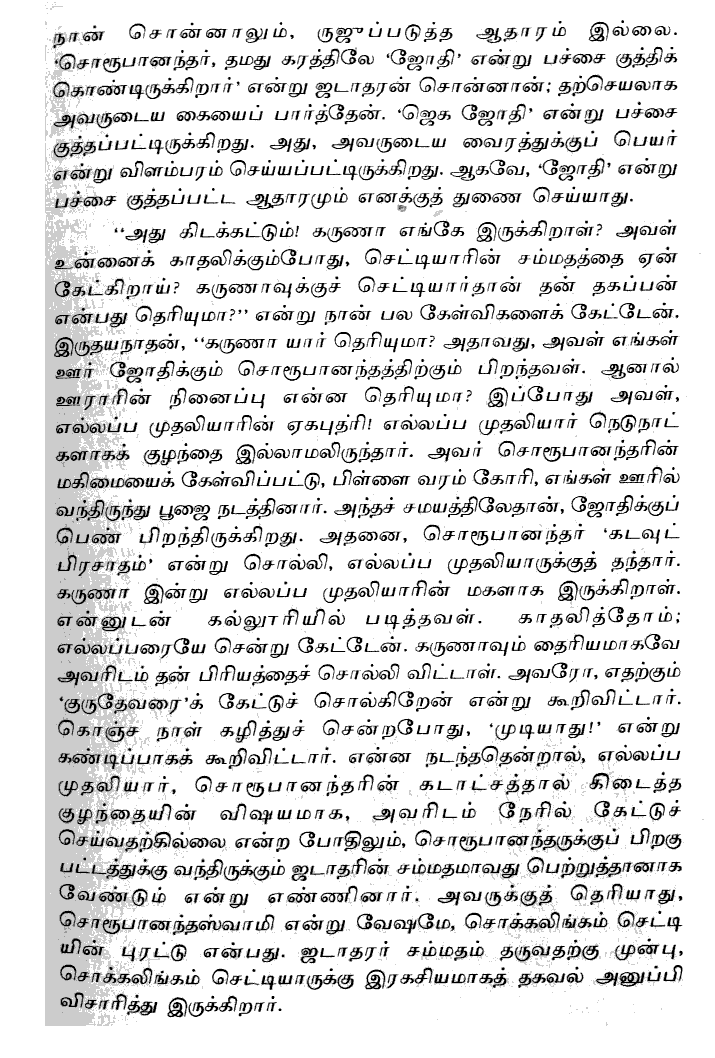 நான் சொன்னாலும், ருஜுப்படுத்த ஆதாரம் இல்லை.
‘சொரூபானந்தர், தமது கரத்திலே ‘ஜோதி’ என்று பச்சை குத்திக்
கொண்டிருக்கிறார்’ என்று ஜடாதரன் சொன்னான்; தற்செயலாக
அவருடைய கையைப் பார்த்தேன். ‘ஜெக ஜோதி’ என்று பச்சை
குத்தப்பட்டிருக்கிறது. அது, அவருடைய வைரத்துக்குப் பெயர்
என்று விளம்பரம் செய்யப்பட்டிருக்கிறது. ஆகவே, ‘ஜோதி’ என்று
பச்சை குத்தப்பட்ட ஆதாரமும் எனக்குத் துணை செய்யாது.
‘‘அது கிடக்கட்டும்! கருணா எங்கே இருக்கிறாள்? அவள்
உன்னைக் காதலிக்கும்போது, செட்டியாரின் சம்மதத்தை ஏன்
கேட்கிறாய்? கருணாவுக்குச் செட்டியார்தான் தன் தகப்பன்
என்பது தெரியுமா?’’ என்று நான் பல கேள்விகளைக் கேட்டேன்.
இருதயநாதன், ‘‘கருணா யார் தெரியுமா? அதாவது, அவள் எங்கள்
ஊர் ஜோதிக்கும் சொரூபானந்தத்திற்கும் பிறந்தவள். ஆனால்
ஊராரின் நினைப்பு என்ன தெரியுமா? இப்போது அவள்,
எல்லப்ப முதலியாரின் ஏகபுத்ரி! எல்லப்ப முதலியார் நெடுநாட்
களாகக் குழந்தை இல்லாமலிருந்தார். அவர் சொரூபானந்தரின்
மகிமையைக் கேள்விப்பட்டு, பிள்ளை வரம் கோரி, எங்கள் ஊரில்
வந்திருந்து பூஜை நடத்தினார். அந்தச் சமயத்திலேதான், ஜோதிக்குப்
பெண் பிறந்திருக்கிறது. அதனை, சொரூபானந்தர் ‘கடவுட்
பிரசாதம்’ என்று சொல்லி, எல்லப்ப முதலியாருக்குத் தந்தார்.
கருணா இன்று எல்லப்ப முதலியாரின் மகளாக இருக்கிறாள்.
என்னுடன் கல்லூரியில் படித்தவள். காதலித்தோம்;
எல்லப்பரையே சென்று கேட்டேன். கருணாவும் தைரியமாகவே
அவரிடம் தன் பிரியத்தைச் சொல்லி விட்டாள். அவரோ, எதற்கும்
‘குருதேவரை’க் கேட்டுச் சொல்கிறேன் என்று கூறிவிட்டார்.
கொஞ்ச நாள் கழித்துச் சென்றபோது, ‘முடியாது!’ என்று
கண்டிப்பாகக் கூறிவிட்டார். என்ன நடந்ததென்றால், எல்லப்ப
முதலியார், சொரூபானந்தரின் கடாட்சத்தால் கிடைத்த
குழந்தையின் விஷயமாக, அவரிடம் நேரில் கேட்டுச்
செய்வதற்கில்லை என்ற போதிலும், சொரூபானந்தருக்குப் பிறகு
பட்டத்துக்கு வந்திருக்கும் ஜடாதரின் சம்மதமாவது பெற்றுத்தானாக
வேண்டும் என்று எண்ணினார். அவருக்குத் தெரியாது,
சொரூபானந்தஸ்வாமி என்று வேஷமே, சொக்கலிங்கம் செட்டி
யின் புரட்டு என்பது. ஜடாதரர் சம்மதம் தருவதற்கு முன்பு,
சொக்கலிங்கம் செட்டியாருக்கு இரகசியமாகத் தகவல் அனுப்பி
விசாரித்து இருக்கிறார்.